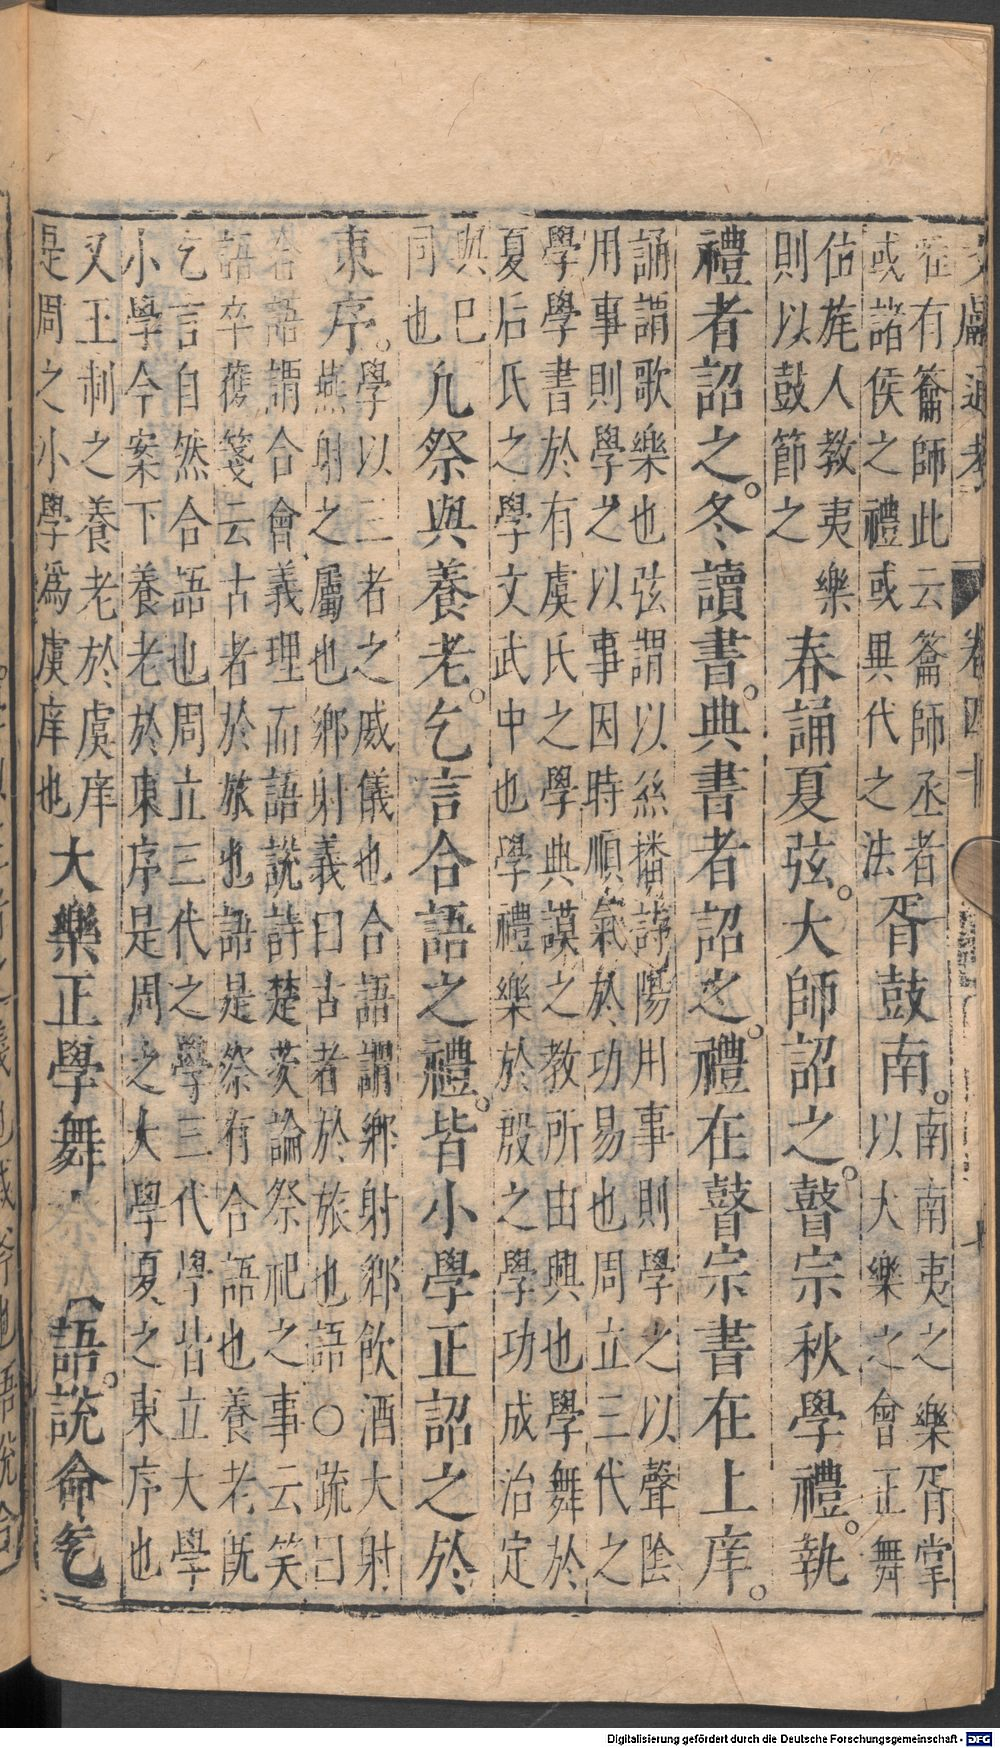 文獻通考 卷四十
在有籥師此云籥師丞者
或諸侯之禮或異代之法
胥鼓南。
南南夷之樂胥掌
以大樂之會正舞
佔旄人教夷樂
則以鼓節之
春誦夏弦。大師詔之。瞽宗秋學禮。執
禮者詔之。冬讀書。典書者詔之。禮在瞽宗書在上庠。
誦謂歌樂也弦謂以絲播詩陽用事則學之以聲陰
用事則學之以事因時順氣於功易也周立三代之
學學書於有虞氏之學典謨之教所由興也學舞於
夏后氏之學文武中也學禮樂於殷之學功成治定
與巳
同也
凡祭與養老。乞言合語之禮。皆小學正詔之於
東序。
學以三者之威儀也合語謂鄉射鄉飲酒大射
燕射之屬也鄉射義曰古者於旅也語○疏曰
合語謂合會義理而語說詩楚茨論祭祀之事云笑
語卒獲箋云古者於旅也語是祭有合語也養老旣
乞言自然合語也周立三代之學三代學皆立大學
小學今案下養老於東序是周之大學夏之東序也
又王制之養老於虞庠
是周之小學為虞庠也
大樂正學舞
語。說命乞
Digitalisierung gefördert durch die Deutsche Forschungsgemeinschaft - DFG